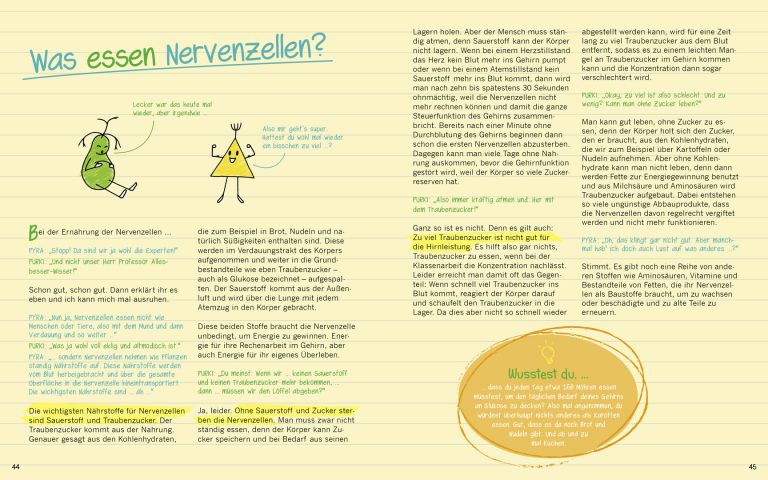 Was essen Nervenzellen?
Lecker war das heute mal
wieder, aber irgendwie ...
Also mir geht's super.
Hattest du wohl mal wieder
ein bisschen zu viel ...?
Bei der Ernährung der Nervenzellen ...
PYRA: „Stopp! Da sind wir ja wohl die Experten!"
PURKI: „Und nicht unser Herr Professor Alles-
besser-Wisser!"
Schon gut, schon gut. Dann erklärt ihr es
eben und ich kann mich mal ausruhen.
PYRA: „Nun ja, Nervenzellen essen nicht wie
Menschen oder Tiere, also mit dem Mund und dann
Verdauung und so weiter ..."
PURKI: „Was ja wohl voll eklig und altmodisch ist."
PYRA: „... sondern Nervenzellen nehmen wie Pflanzen
ständig Nährstoffe auf. Diese Nährstoffe werden
vom Blut herbeigebracht und über die gesamte
Oberfläche in die Nervenzelle hineintransportiert.
Die wichtigsten Nährstoffe sind ... äh ..."
Die wichtigsten Nährstoffe für Nervenzellen
sind Sauerstoff und Traubenzucker. Der
Traubenzucker kommt aus der Nahrung.
Genauer gesagt aus den Kohlenhydraten,
44
die zum Beispiel in Brot, Nudeln und na-
türlich Süßigkeiten enthalten sind. Diese
werden im Verdauungstrakt des Körpers
aufgenommen und weiter in die Grund-
bestandteile wie eben Traubenzucker –
auch als Glukose bezeichnet – aufgespal-
ten. Der Sauerstoff kommt aus der Außen-
luft und wird über die Lunge mit jedem
Atemzug in den Körper gebracht.
Diese beiden Stoffe braucht die Nervenzelle
unbedingt, um Energie zu gewinnen. Ener-
gie für ihre Rechenarbeit im Gehirn, aber
auch Energie für ihr eigenes Überleben.
PURKI: „Du meinst: Wenn wir ... keinen Sauerstoff
und keinen Traubenzucker mehr bekommen, ...
dann ... müssen wir den Löffel abgeben?"
Ja, leider. Ohne Sauerstoff und Zucker ster-
ben die Nervenzellen. Man muss zwar nicht
ständig essen, denn der Körper kann Zu-
cker speichern und bei Bedarf aus seinen
Lagern holen. Aber der Mensch muss stän-
dig atmen, denn Sauerstoff kann der Körper
nicht lagern. Wenn bei einem Herzstillstand
das Herz kein Blut mehr ins Gehirn pumpt
oder wenn bei einem Atemstillstand kein
Sauerstoff mehr ins Blut kommt, dann wird
man nach zehn bis spätestens 30 Sekunden
ohnmächtig, weil die Nervenzellen nicht
mehr rechnen können und damit die ganze
Steuerfunktion des Gehirns zusammen-
bricht. Bereits nach einer Minute ohne
Durchblutung des Gehirns beginnen dann
schon die ersten Nervenzellen abzusterben.
Dagegen kann man viele Tage ohne Nah-
rung auskommen, bevor die Gehirnfunktion
gestört wird, weil der Körper so viele Zucker-
reserven hat.
PURKI: „Also immer kräftig atmen und: Her mit
dem Traubenzucker!"
Ganz so ist es nicht. Denn es gilt auch:
Zu viel Traubenzucker ist nicht gut für
die Hirnleistung. Es hilft also gar nichts,
Traubenzucker zu essen, wenn bei der
Klassenarbeit die Konzentration nachlässt.
Leider erreicht man damit oft das Gegen-
teil: Wenn schnell viel Traubenzucker ins
Blut kommt, reagiert der Körper darauf
und schaufelt den Traubenzucker in die
Lager. Da dies aber nicht so schnell wieder
abgestellt werden kann, wird für eine Zeit
lang zu viel Traubenzucker aus dem Blut
entfernt, sodass es zu einem leichten Man-
gel an Traubenzucker im Gehirn kommen
kann und die Konzentration dann sogar
verschlechtert wird.
PURKI: „Okay, zu viel ist also schlecht. Und zu
wenig? Kann man ohne Zucker leben?"
Man kann gut leben, ohne Zucker zu es-
sen, denn der Körper holt sich den Zucker,
den er braucht, aus den Kohlenhydraten,
die wir zum Beispiel über Kartoffeln oder
Nudeln aufnehmen. Aber ohne Kohlen-
hydrate kann man nicht leben, denn dann
werden Fette zur Energiegewinnung benutzt
und aus Milchsäure und Aminosäuren wird
Traubenzucker aufgebaut. Dabei entstehen
so viele ungünstige Abbauprodukte, dass
die Nervenzellen davon regelrecht vergiftet
werden und nicht mehr funktionieren.
PYRA: „Oh, das klingt gar nicht gut. Aber manch-
mal hab' ich doch auch Lust auf was anderes ...?"
Stimmt. Es gibt noch eine Reihe von ande-
ren Stoffen wie Aminosäuren, Vitamine und
Bestandteile von Fetten, die ihr Nervenzel-
len als Baustoffe braucht, um zu wachsen
oder beschädigte und zu alte Teile zu
erneuern.
Wusstest du, ...
... dass du jeden Tag etwa 160 Möhren essen
müsstest, um den täglichen Bedarf deines Gehirns
an Glukose zu decken? Also mal angenommen, du
würdest überhaupt nichts anderes als Karotten
essen. Gut, dass es da noch Brot und
Nudeln gibt. Und ab und zu
mal Kuchen.
45